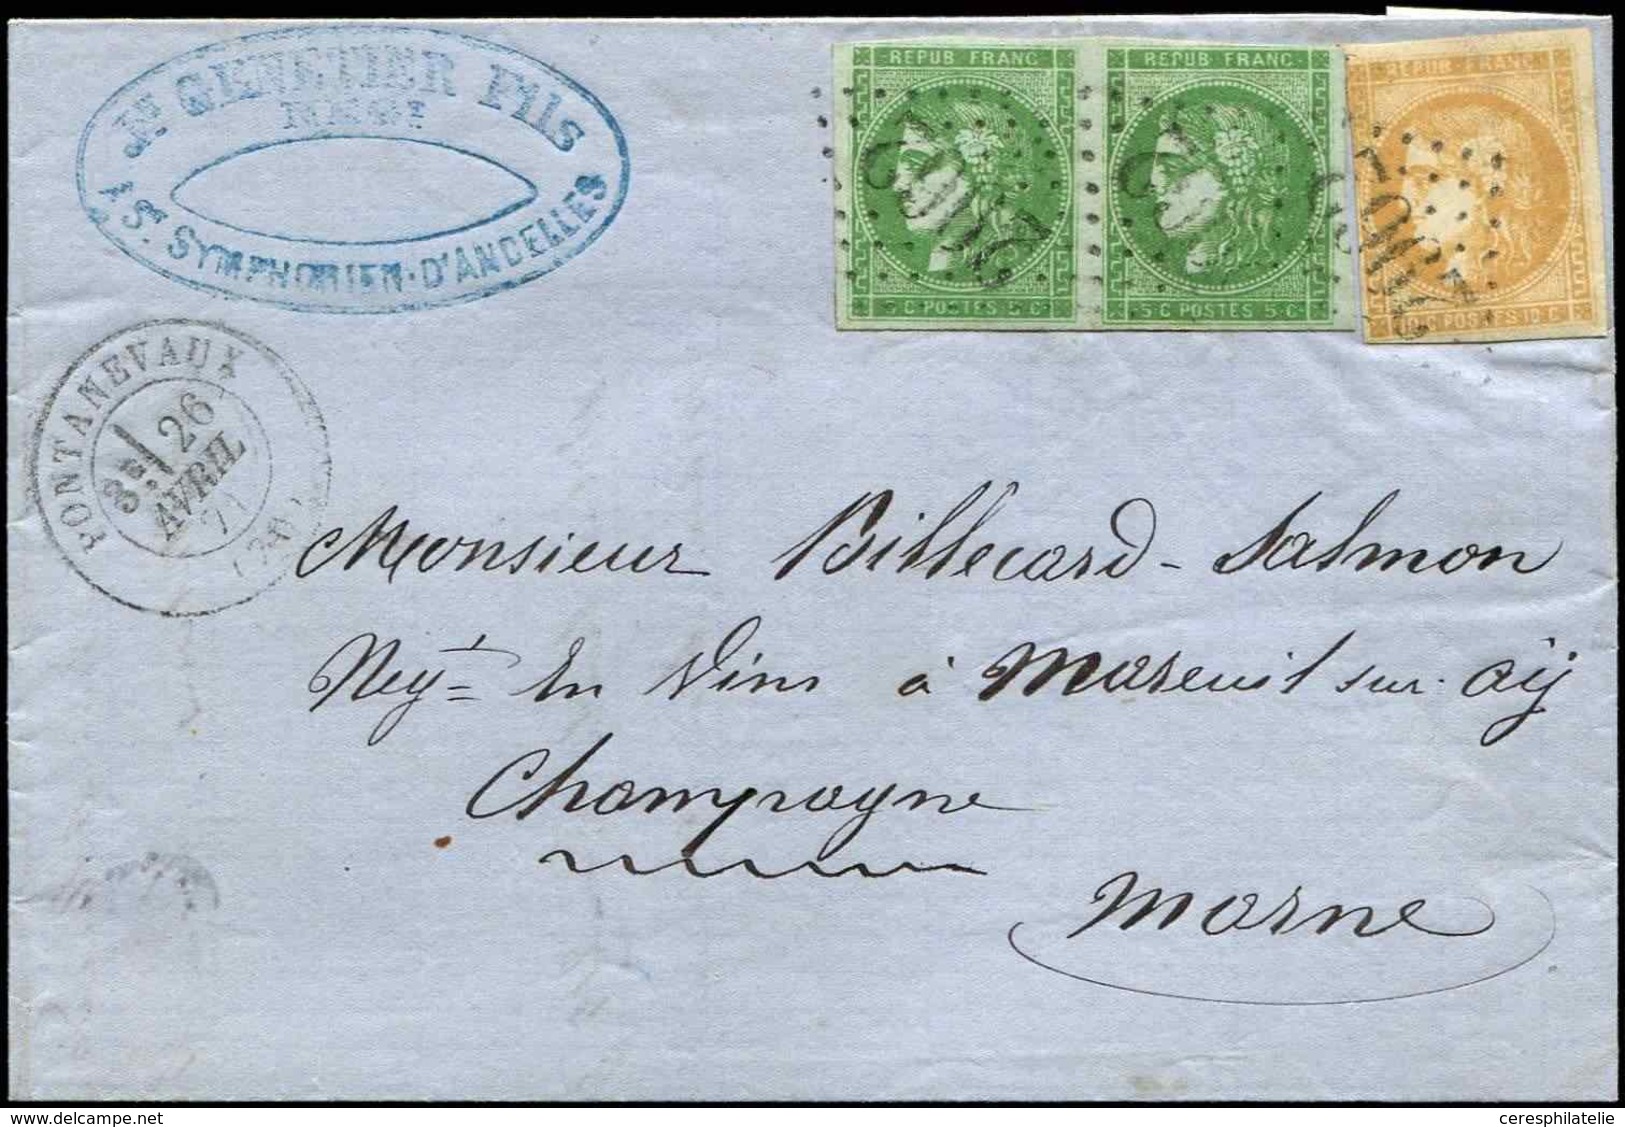 Jh GENETIER Fils
NÉGt
A St SYMPHORIEN-D'ANCELLES
REPUB FRANC
REPUB FRANC
REPUB FRANC
5 C POSTES 5 C
5 C POSTES 5 C
10 C POSTES 10 C
PONTANEVAUX
3E
26
AVRIL
71
(70)
Monsieur Billecard-Salmon
Negt En Vins à Mareuil sur Aÿ
Champagne
Marne
ceresphilatelie